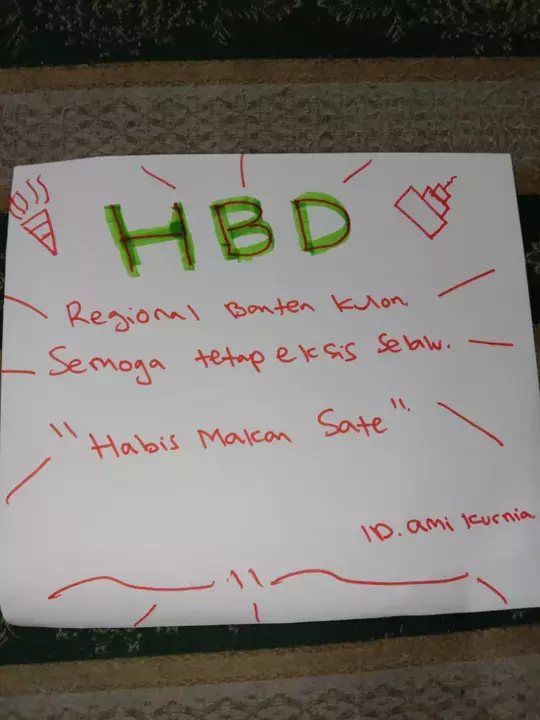 HBD
Regional Banten Kulon.
Semoga tetap eksis Selaw.
"Habis Makan Sate".
ID. ami kurnia